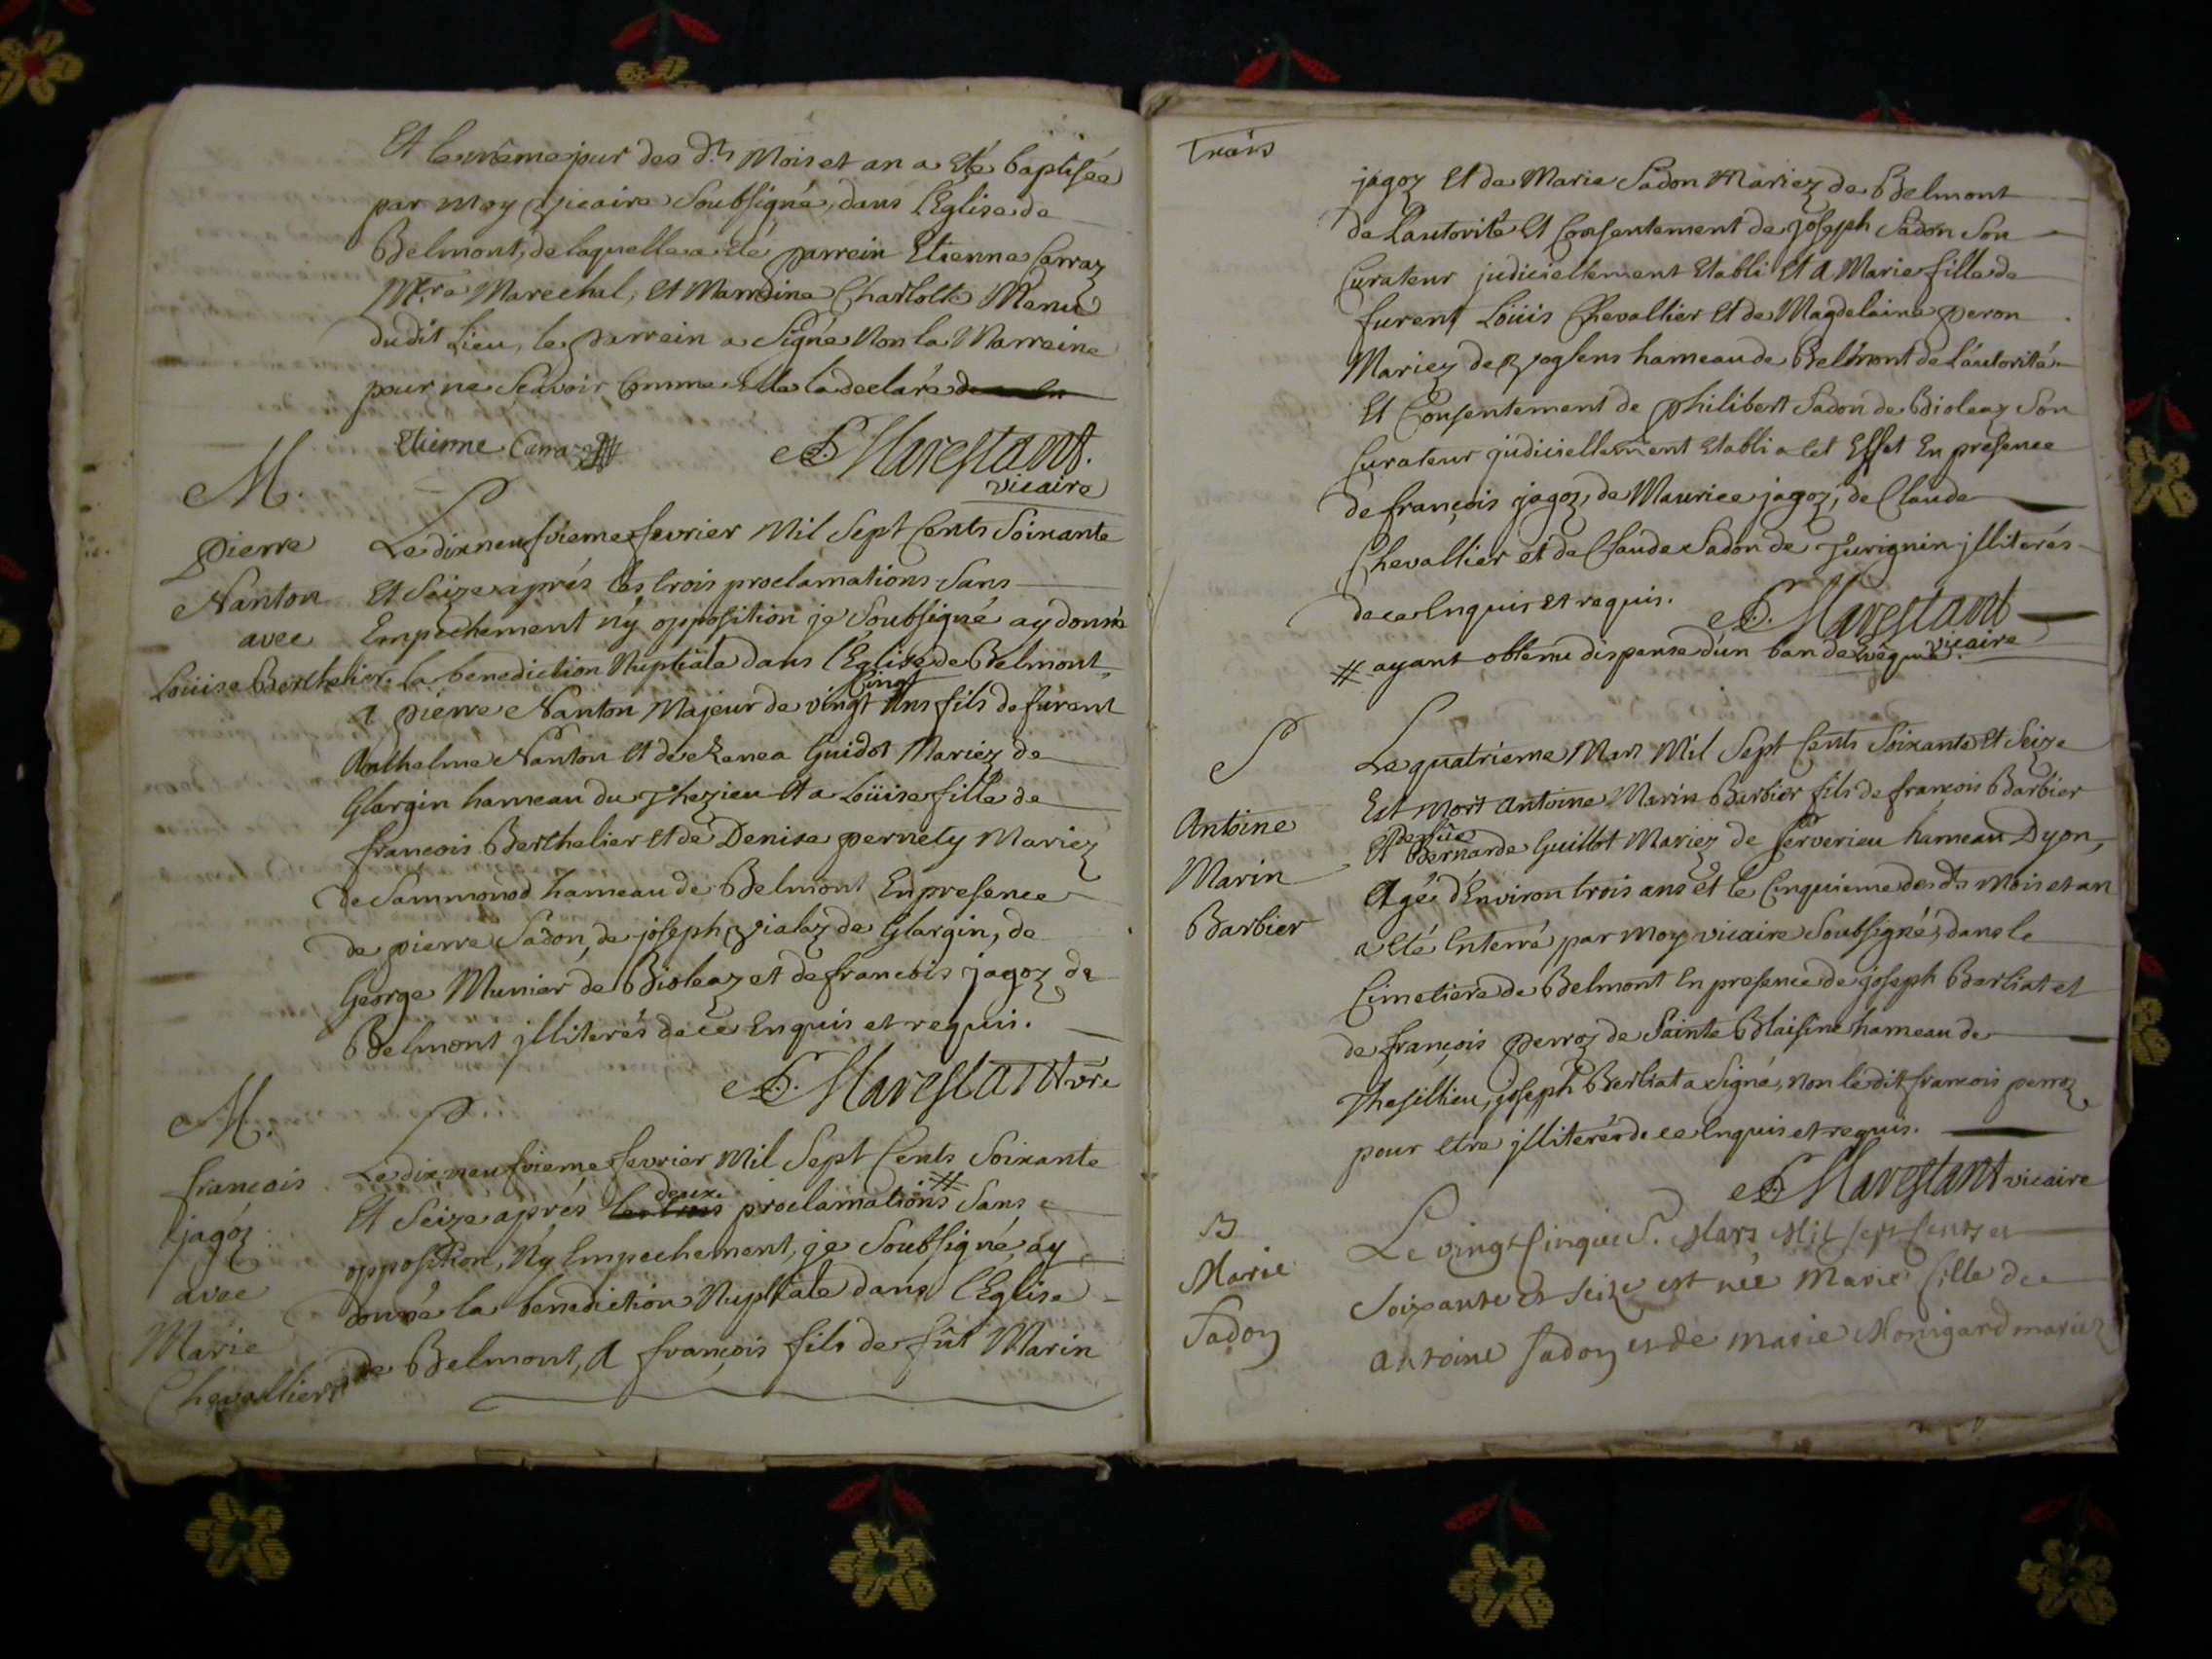 Et le même jour des dts Mois et an a Eté baptisée
par moy vicaire Soubsigné, dans l'Eglise de
Belmont, de laquelle a eté parrein Etienne Carraz
Mtre Marechal, et Marreine Charlotte Menu
dudit Lieu, le parrein a Signé Non la Marreine
pour ne Sçavoir comme Elle la declaré
Etienne Carraz
Marestant.
vicaire
M.
pierre
Nanton
avec
Loüise Berthelier.
Le dixneufvieme fevrier Mil Sept Cents Soixante
Et Seize aprés les trois proclamations Sans
Empechement ny opposition je Soubsigné ay donné
la benediction Nuptiale dans l'Eglise de Belmont
Cinq
a pierre Nanton Majeur de vingt ans fils de furent
Anthelme Nanton et de Renea Guidot Mariez de
Glargin hameau du Thezieu Et a Loüise fille de
francois Berthelier et de Denise pernety Mariez
de Sammonod hameau de Belmont En presence
de pierre Sadon, de joseph vialaz de Glargin, de
George Munier de Bioleaz et de francois jagoz de
Belmont jlliterés de ce Enquis et requis.
Marestant vre
M.
francois
jagóz
avec
Marie
Chevallier
Le dixneufvieme fevrier Mil Sept Cents Soixante
deux #
Et Seize aprés les trois proclamations Sans
opposition, Ny Empechement, je Soubsigné ay
donné la benediction Nuptiale dans l'Eglise
de Belmont, A françois fils de fût Marin
Trois
jagoz Et de Marie Sadon Mariez de Belmont
de L'autorité Et Consentement de joseph Sadon Son
Curateur judiciellement Etabli Et A Marie fille de
furent Loüis Chevallier Et de Magdelaine peron
Mariez de voglens hameau de Belmont de L'autorité
Et Consentement de philibert Sadon de Bioleaz Son
Curateur judiciellement Etabli a cet Effet En presence
de françois jagoz, de Maurice jagoz, de Claude
Chevallier et de Claude Sadon de Jurignin jlliterés
de ce Enquis et requis.
Marestant
vicaire
# ayant obtenu dispense d'un ban de
S
Antoine
Marin
Barbier
Le quatrieme Mars Mil Sept Cents Soixante Et Seize
Est mort Antoine Marin Barbier fils de francois Barbier
de fûe
Et Bernarde Guillot Mariez de Cerverieu hameau Dyon,
Agé d'Environ trois ans et le Cinquieme des dts Mois et an
a eté Enterré par moy vicaire Soubsigné, dans le
Cimetiere de Belmont En presence de joseph Berliat et
de françois perroz de Sainte Blaisine hameau de
Thesillieu, joseph Berliat a Signé, non le dit francois perroz
pour Etre jlliteré de ce Enquis et requis.
Marestant vicaire
B
Marie
Sadon
Le vingt Cinquie. Mars Mil Sept Cents et
Soixante et Seize est née Marie fille de
Antoine Sadon et de Marie Monigard mariez